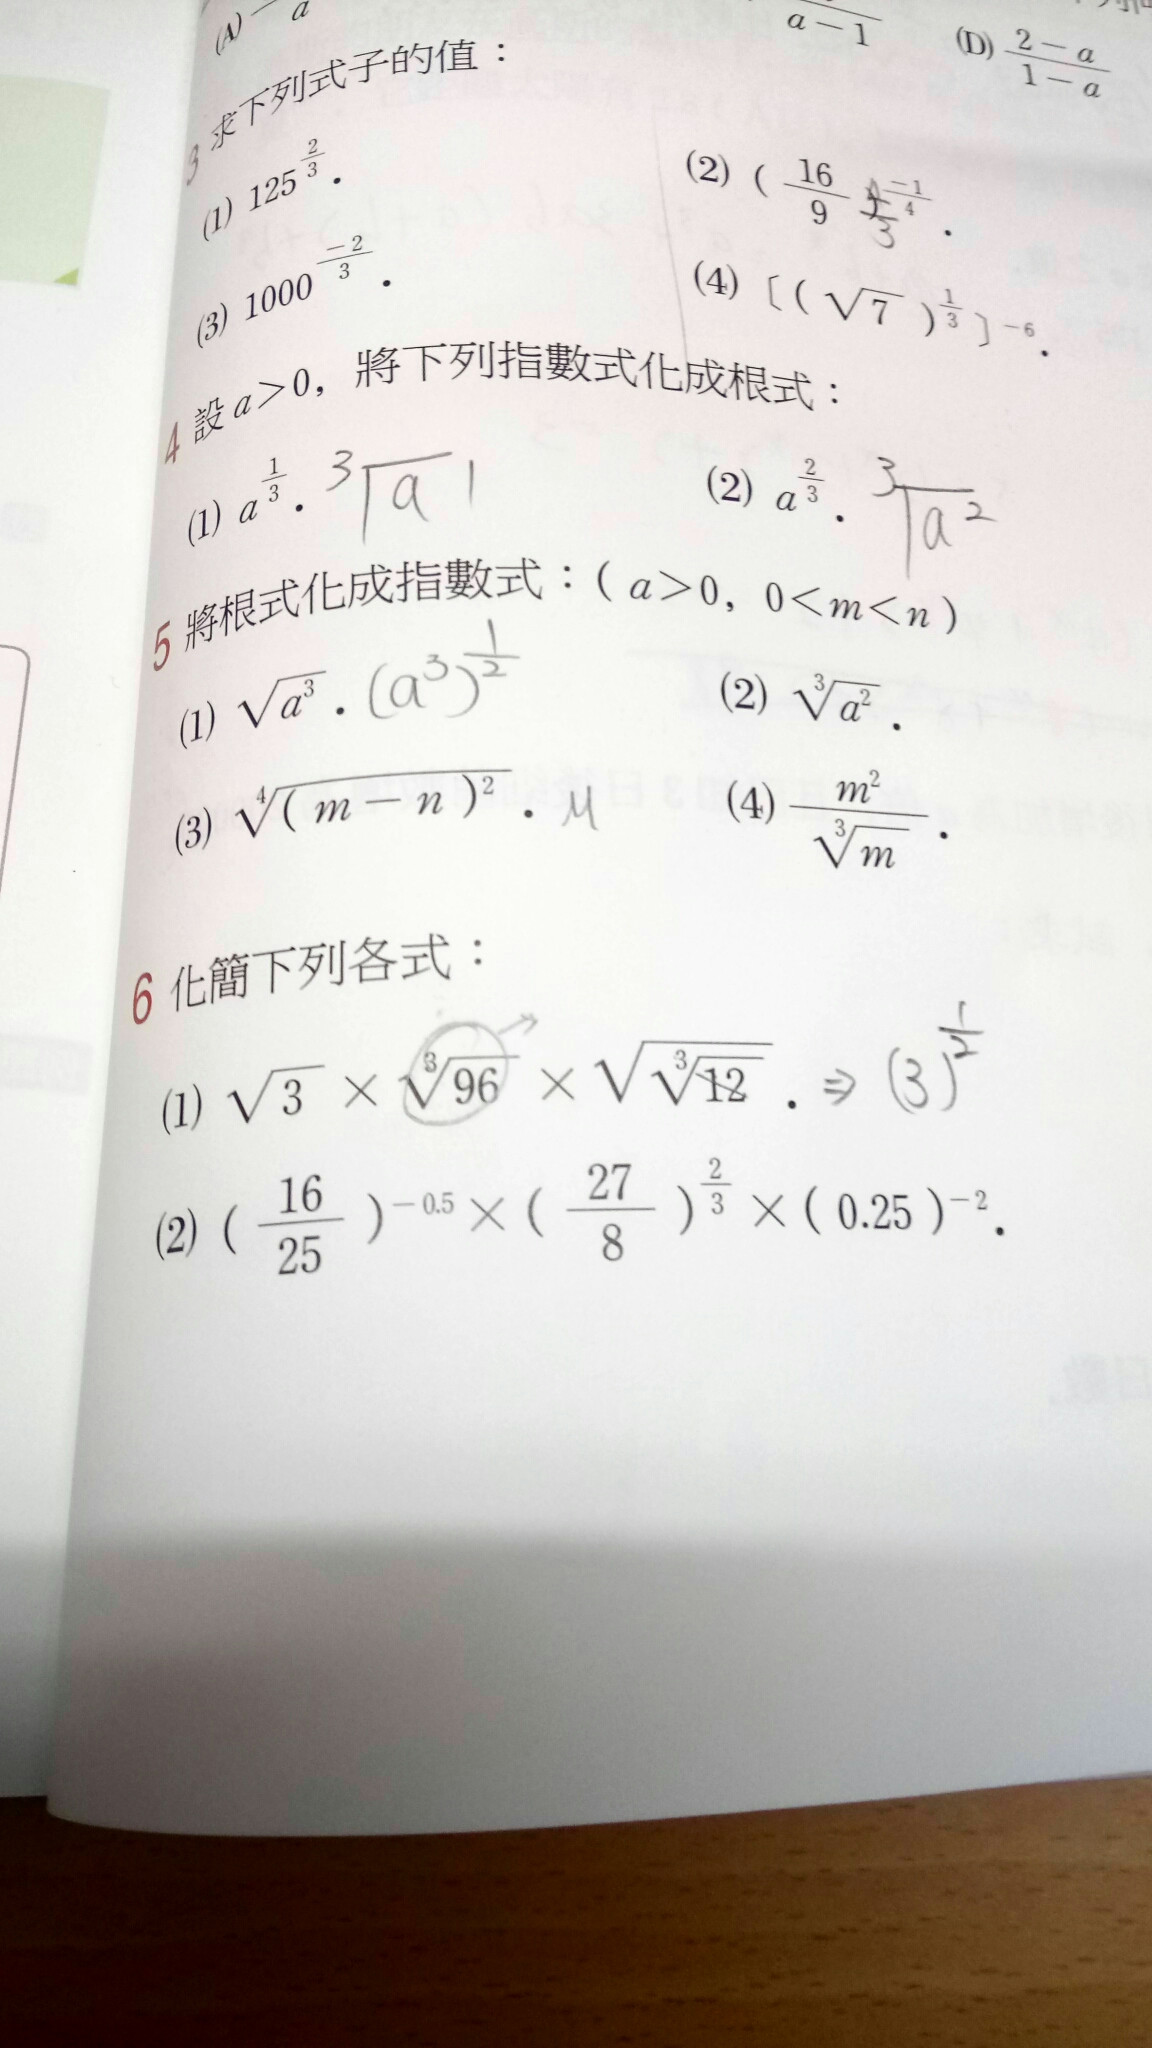 (A) a a－1 (D) 2－a / 1－a
3 求下列式子的值：
(1) 125^(2/3). (2) (16/9)^(－1/4). 4/3
(3) 1000^(－2/3). (4) 〔(√7)^(1/3)〕^－6.
4 設 a＞0，將下列指數式化成根式：
(1) a^(1/3). ³√a 1 (2) a^(2/3). ³√a²
5 將根式化成指數式：(a＞0，0＜m＜n)
(1) √a³. (a³)^(1/2) (2) ³√a².
(3) ⁴√(m－n)². M (4) m² / ³√m.
6 化簡下列各式：
(1) √3 × ³√96 × √³√12. ⇒ (3)^(1/2)
(2) (16/25)^－0.5 × (27/8)^(2/3) × (0.25)^－2.